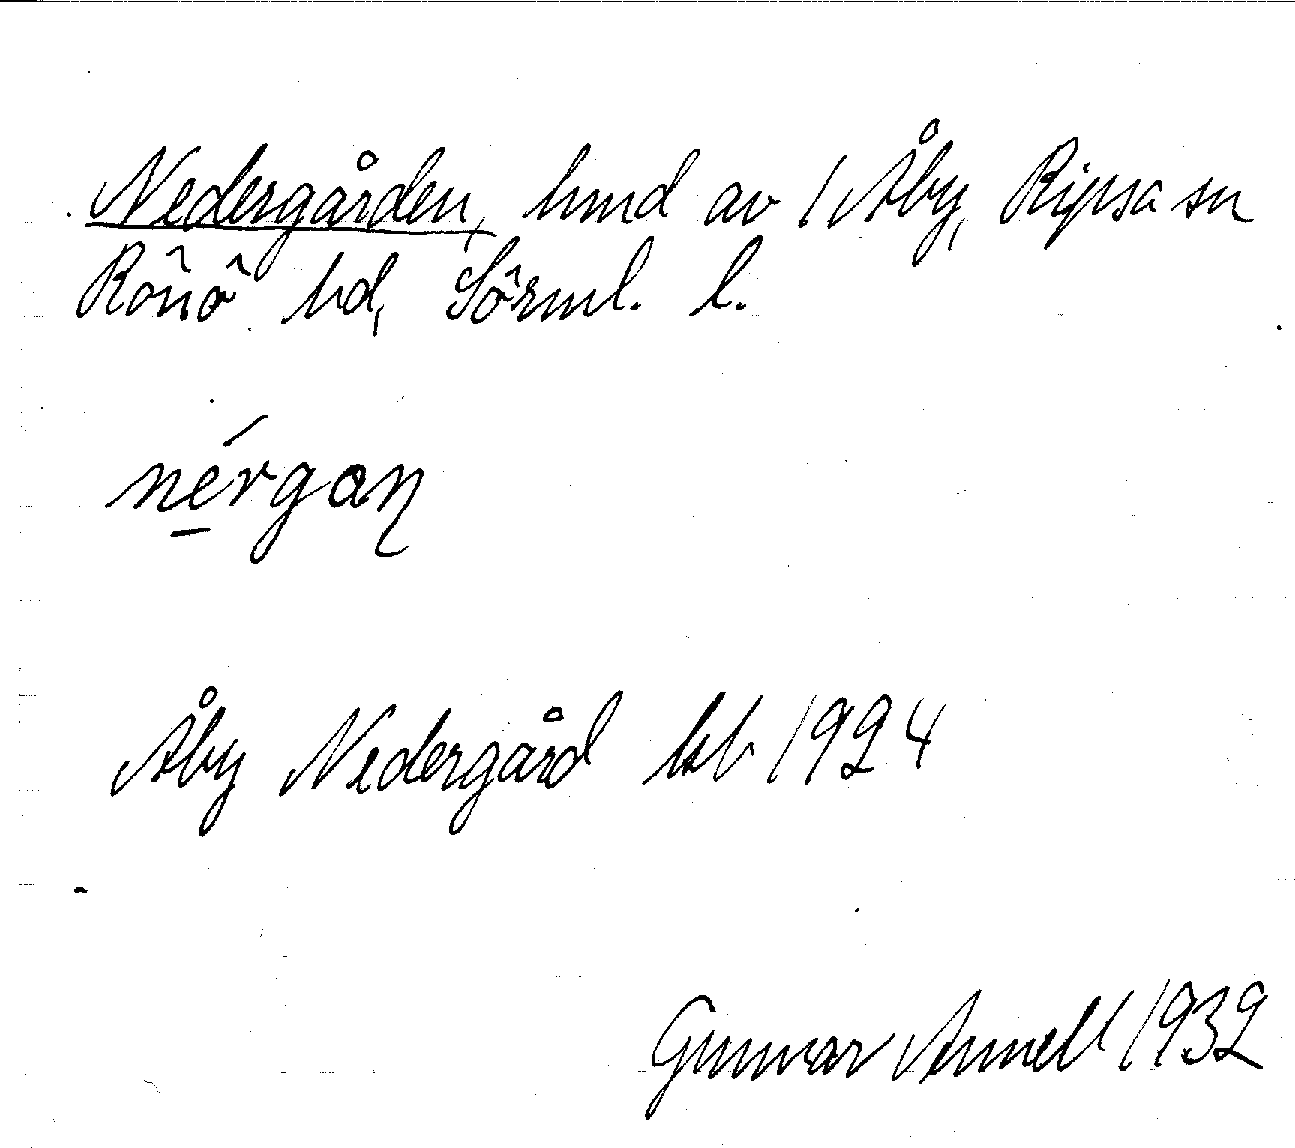 Nedergården, hmd av 1 Åby, Ripsa sn
Rönö hd, Sörml. l.
nérgaɳ
Åby Nedergård kb 1924
Gunnar Annell 1932